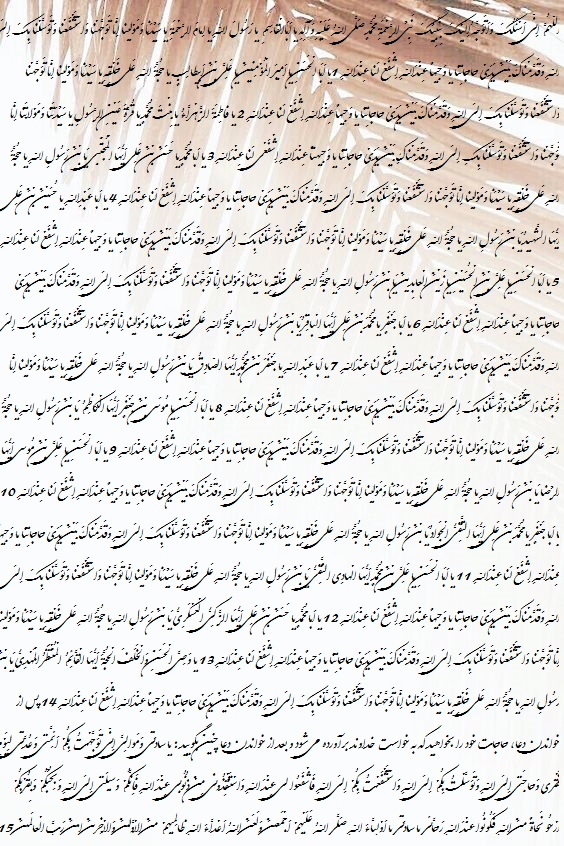 اَللّهُمَّ اِنّى اَسْئَلُكَ وَاَتَوَجَّهُ اِلَيْكَ بِنَبِيِّكَ نَبِىِّ الرَّحْمَةِ مُحَمَّدٍ صَلَّى اللّهُ عَلَيْهِ وَ آلِهِ يا اَبَاالْقاسِمِ يا رَسُولَ اللّهِ يا اِمامَ الرَّحْمَةِ يا سَيِّدَنا وَمَوْلينا اِنّا تَوَجَّهْنا وَاسْتَشْفَعْنا وَتَوَسَّلْنا بِكَ اِلىَ
اللّهِ وَقَدَّمْناكَ بَيْنَ يَدَىْ حاجاتِنا يا وَجيهاً عِنْدَاللّهِ اِشْفَعْ لَنا عِنْدَاللّهِ 1 يا اَبَا الْحَسَنِ يا اَميرَ الْمُؤْمِنينَ يا عَلِىَّ بْنَ اَبيطالِبٍ يا حُجَّةَ اللّهِ عَلى خَلْقِهِ يا سَيِّدَنا وَمَوْلينا اِنّا تَوَجَّهْنا
وَاسْتَشْفَعْنا وَتَوَسَّلْنا بِكَ اِلىَ اللّهِ وَقَدَّمْناكَ بَيْنَ يَدَىْ حاجاتِنا يا وَجيهاً عِنْدَاللّهِ اِشْفَعْ لَنا عِنْدَاللّهِ 2 يا فاطِمَةُ الزَّهْراَّءُ يا بِنْتَ مُحَمَّدٍ يا قُرَّةَ عَيْنِ الرَّسُولِ يا سَيِّدَتَنا وَمَوْلاتَنا اِنّا
تَوَجَّهْنا وَاسْتَشْفَعْنا وَتَوَسَّلْنا بِكِ اِلىَ اللّهِ وَقَدَّمْناكِ بَيْنَ يَدَىْ حاجاتِنا يا وَجيهةً عِنْدَاللّهِ اِشْفَعى لَنا عِنْدَاللّهِ 3 يا اَبا مُحَمَّدٍ يا حَسَنَ بْنَ عَلِي اَيُّهَا الْمُجْتَبى يَا بْنَ رَسُولِ اللّهِ يا حُجَّةَ
اللّهِ عَلى خَلْقِهِ يا سَيِّدَنا وَمَوْلينا اِنّا تَوَجَّهْنا وَاسْتَشْفَعْنا وَتَوَسَّلْنا بِكَ اِلىَ اللّهِ وَقَدَّمْناكَ بَيْنَ يَدَىْ حاجاتِنا يا وَجيهاً عِنْدَاللّهِ اِشْفَعْ لَنا عِنْدَاللّهِ 4 يا اَبا عَبْدِاللّهِ يا حُسَيْنَ بْنَ عَلِي
اَيُّهَا الشَّهيدُ يَا بْنَ رَسُولِ اللّهِ يا حُجَّةَ اللّهِ عَلى خَلْقِهِ يا سَيِّدَنا وَمَوْلينا اِنّا تَوَجَّهْنا وَاسْتَشْفَعْنا وَتَوَسَّلْنا بِكَ اِلىَ اللّهِ وَقَدَّمْناكَ بَيْنَ يَدَىْ حاجاتِنا يا وَجيهاً عِنْدَاللّهِ اِشْفَعْ لَنا عِنْدَاللّهِ
5 يا اَبَا الْحَسَنِ يا عَلِىَّ بْنَ الْحُسَيْنِ يا زَيْنَ الْعابِدينَ يَا بْنَ رَسُولِ اللّهِ يا حُجَّةَ اللّهِ عَلى خَلْقِهِ يا سَيِّدَنا وَمَوْلينا اِنّا تَوَجَّهْنا وَاسْتَشْفَعْنا وَتَوَسَّلْنا بِكَ اِلىَ اللّهِ وَقَدَّمْناكَ بَيْنَ يَدَىْ
حاجاتِنا يا وَجيهاً عِنْدَاللّهِ اِشْفَعْ لَنا عِنْدَاللّهِ 6 يا اَبا جَعْفَرٍ يا مُحَمَّدَ بْنَ عَلِي اَيُّهَا الْباقِرُ يَا بْنَ رَسُولِ اللّهِ يا حُجَّةَ اللّهِ عَلى خَلْقِهِ يا سَيِّدَنا وَمَوْلينا اِنّا تَوَجَّهْنا وَاسْتَشْفَعْنا وَتَوَسَّلْنا بِكَ اِلىَ
اللّهِ وَقَدَّمْناكَ بَيْنَ يَدَىْ حاجاتِنا يا وَجيهاً عِنْدَاللّهِ اِشْفَعْ لَنا عِنْدَاللّهِ 7 يا اَبا عَبْدِ اللّهِ يا جَعْفَرَ بْنَ مُحَمَّدٍ اَيُّهَا الصّادِقُ يَا بْنَ رَسُولِ اللّهِ يا حُجَّةَ اللّهِ عَلى خَلْقِهِ يا سَيِّدَنا وَمَوْلينا اِنّا
تَوَجَّهْنا وَاسْتَشْفَعْنا وَتَوَسَّلْنا بِكَ اِلىَ اللّهِ وَقَدَّمْناكَ بَيْنَ يَدَىْ حاجاتِنا يا وَجيهاً عِنْدَاللّهِ اِشْفَعْ لَنا عِنْدَاللّهِ 8 يا اَبَا الْحَسَنِ يا مُوسَى بْنَ جَعْفَرٍ اَيُّهَا الْكاظِمُ يَا بْنَ رَسُولِ اللّهِ يا حُجَّةَ
اللّهِ عَلى خَلْقِهِ يا سَيِّدَنا وَمَوْلينا اِنّا تَوَجَّهْنا وَاسْتَشْفَعْنا وَتَوَسَّلْنا بِكَ اِلىَ اللّهِ وَقَدَّمْناكَ بَيْنَ يَدَىْ حاجاتِنا يا وَجيهاً عِنْدَاللّهِ اِشْفَعْ لَنا عِنْدَاللّهِ 9 يا اَبَا الْحَسَنِ يا عَلِىَّ بْنَ مُوسى اَيُّهَا
الرِّضا يَا بْنَ رَسُولِ اللّهِ يا حُجَّةَ اللّهِ عَلى خَلْقِهِ يا سَيِّدَنا وَمَوْلينا اِنّا تَوَجَّهْنا وَاسْتَشْفَعْنا وَتَوَسَّلْنا بِكَ اِلىَ اللّهِ وَقَدَّمْناكَ بَيْنَ يَدَىْ حاجاتِنا يا وَجيهاً عِنْدَاللّهِ اِشْفَعْ لَنا عِنْدَاللّهِ 10
يا اَبا جَعْفَرٍ يا مُحَمَّدَ بْنَ عَلِي اَيُّهَا التَّقِىُّ الْجَوادُ يَا بْنَ رَسُولِ اللّهِ يا حُجَّةَ اللّهِ عَلى خَلْقِهِ يا سَيِّدَنا وَمَوْلينا اِنّا تَوَجَّهْنا وَاسْتَشْفَعْنا وَتَوَسَّلْنا بِكَ اِلىَ اللّهِ وَقَدَّمْناكَ بَيْنَ يَدَىْ حاجاتِنا يا وَجيهاً
عِنْدَاللّهِ اِشْفَعْ لَنا عِنْدَاللّهِ 11 يا اَبَا الْحَسَنِ يا عَلِىَّ بْنَ مُحَمَّدٍ اَيُّهَا الْهادِى النَّقِىُّ يَا بْنَ رَسُولِ اللّهِ يا حُجَّةَ اللّهِ عَلى خَلْقِهِ يا سَيِّدَنا وَمَوْلينا اِنّا تَوَجَّهْنا وَاسْتَشْفَعْنا وَتَوَسَّلْنا بِكَ اِلىَ
اللّهِ وَقَدَّمْناكَ بَيْنَ يَدَىْ حاجاتِنا يا وَجيهاً عِنْدَاللّهِ اِشْفَعْ لَنا عِنْدَاللّهِ 12 يا اَبا مُحَمَّدٍ يا حَسَنَ بْنَ عَلِي اَيُّهَا الزَّكِىُّ الْعَسْكَرِىُّ يَا بْنَ رَسُولِ اللّهِ يا حُجَّةَ اللّهِ عَلى خَلْقِهِ يا سَيِّدَنا وَمَوْلينا
اِنّا تَوَجَّهْنا وَاسْتَشْفَعْنا وَتَوَسَّلْنا بِكَ اِلىَ اللّهِ وَقَدَّمْناكَ بَيْنَ يَدَىْ حاجاتِنا يا وَجيهاً عِنْدَاللّهِ اِشْفَعْ لَنا عِنْدَاللّهِ 13 يا وَصِىَّ الْحَسَنِ وَالْخَلَفَ الْحُجَّةَ اَيُّهَا الْقاَّئِمُ الْمُنْتَظَرُ الْمَهْدِىُّ يَا بْنَ
رَسُولِ اللّهِ يا حُجَّةَ اللّهِ عَلى خَلْقِهِ يا سَيِّدَنا وَمَوْلينا اِنّا تَوَجَّهْنا وَاسْتَشْفَعْنا وَتَوَسَّلْنا بِكَ اِلىَ اللّهِ وَقَدَّمْناكَ بَيْنَ يَدَىْ حاجاتِنا يا وَجيهاً عِنْدَاللّهِ اِشْفَعْ لَنا عِنْدَاللّهِ 14 پس از
خواندن دعا، حاجات خود را بخواهید که به خواست خداوند برآورده می شود و بعد از خواندن دعا چنین بگوئید: يا سادَتى وَمَوالِىَّ اِنّى تَوَجَّهْتُ بِكُمْ اَئِمَّتى وَعُدَّتى لِيَوْمِ
فَقْرى وَحاجَتى اِلَى اللّهِ وَتَوَسَّلْتُ بِكُمْ اِلَى اللّهِ وَاسْتَشْفَعْتُ بِكُمْ اِلَى اللّهِ فَاشْفَعُوا لى عِنْدَ اللّهِ وَاسْتَنْقِذُونى مِنْ ذُنُوبى عِنْدَ اللّهِ فَاِنَّكُمْ وَسيلَتى اِلَى اللّهِ وَبِحُبِّكُمْ وَبِقُرْبِكُمْ
اَرْجُو نَجاةً مِنَ اللّهِ فَكُونُوا عِنْدَ اللّهِ رَجاَّئى يا سادَتى يا اَوْلِياَّءَ اللّهِ صَلَّى اللّهُ عَلَيْهِمْ اَجْمَعينَ وَلَعَنَ اللّهُ اَعْداَّءَ اللّهِ ظالِميهِمْ مِنَ الاْوَّلينَ وَالاْخِرينَ امينَ رَبَّ الْعالَمينَ 15